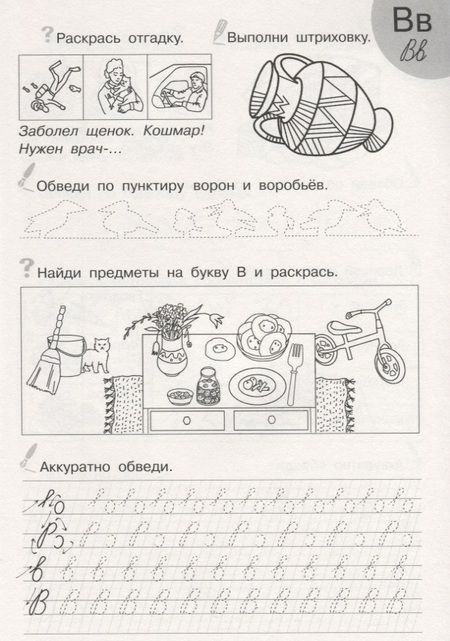 Вв
Вв
Раскрась отгадку.
Выполни штриховку.
Заболел щенок. Кошмар!
Нужен врач-...
Обведи по пунктиру ворон и воробьёв.
Найди предметы на букву В и раскрась.
Аккуратно обведи.
в
В